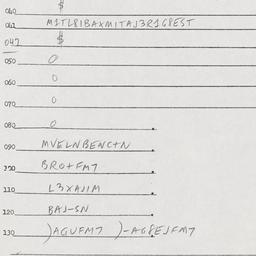 040 $
041 M1TL8IBAXMITAJ3R1G8EST
042 $
050 0
060 0
070 0
080 0
090 MVELNBENC+N
100 BRO+FM7
110 L3XAJIM
120 BAJ-SN
130 )AGVFM7 )-AG8EJFM7